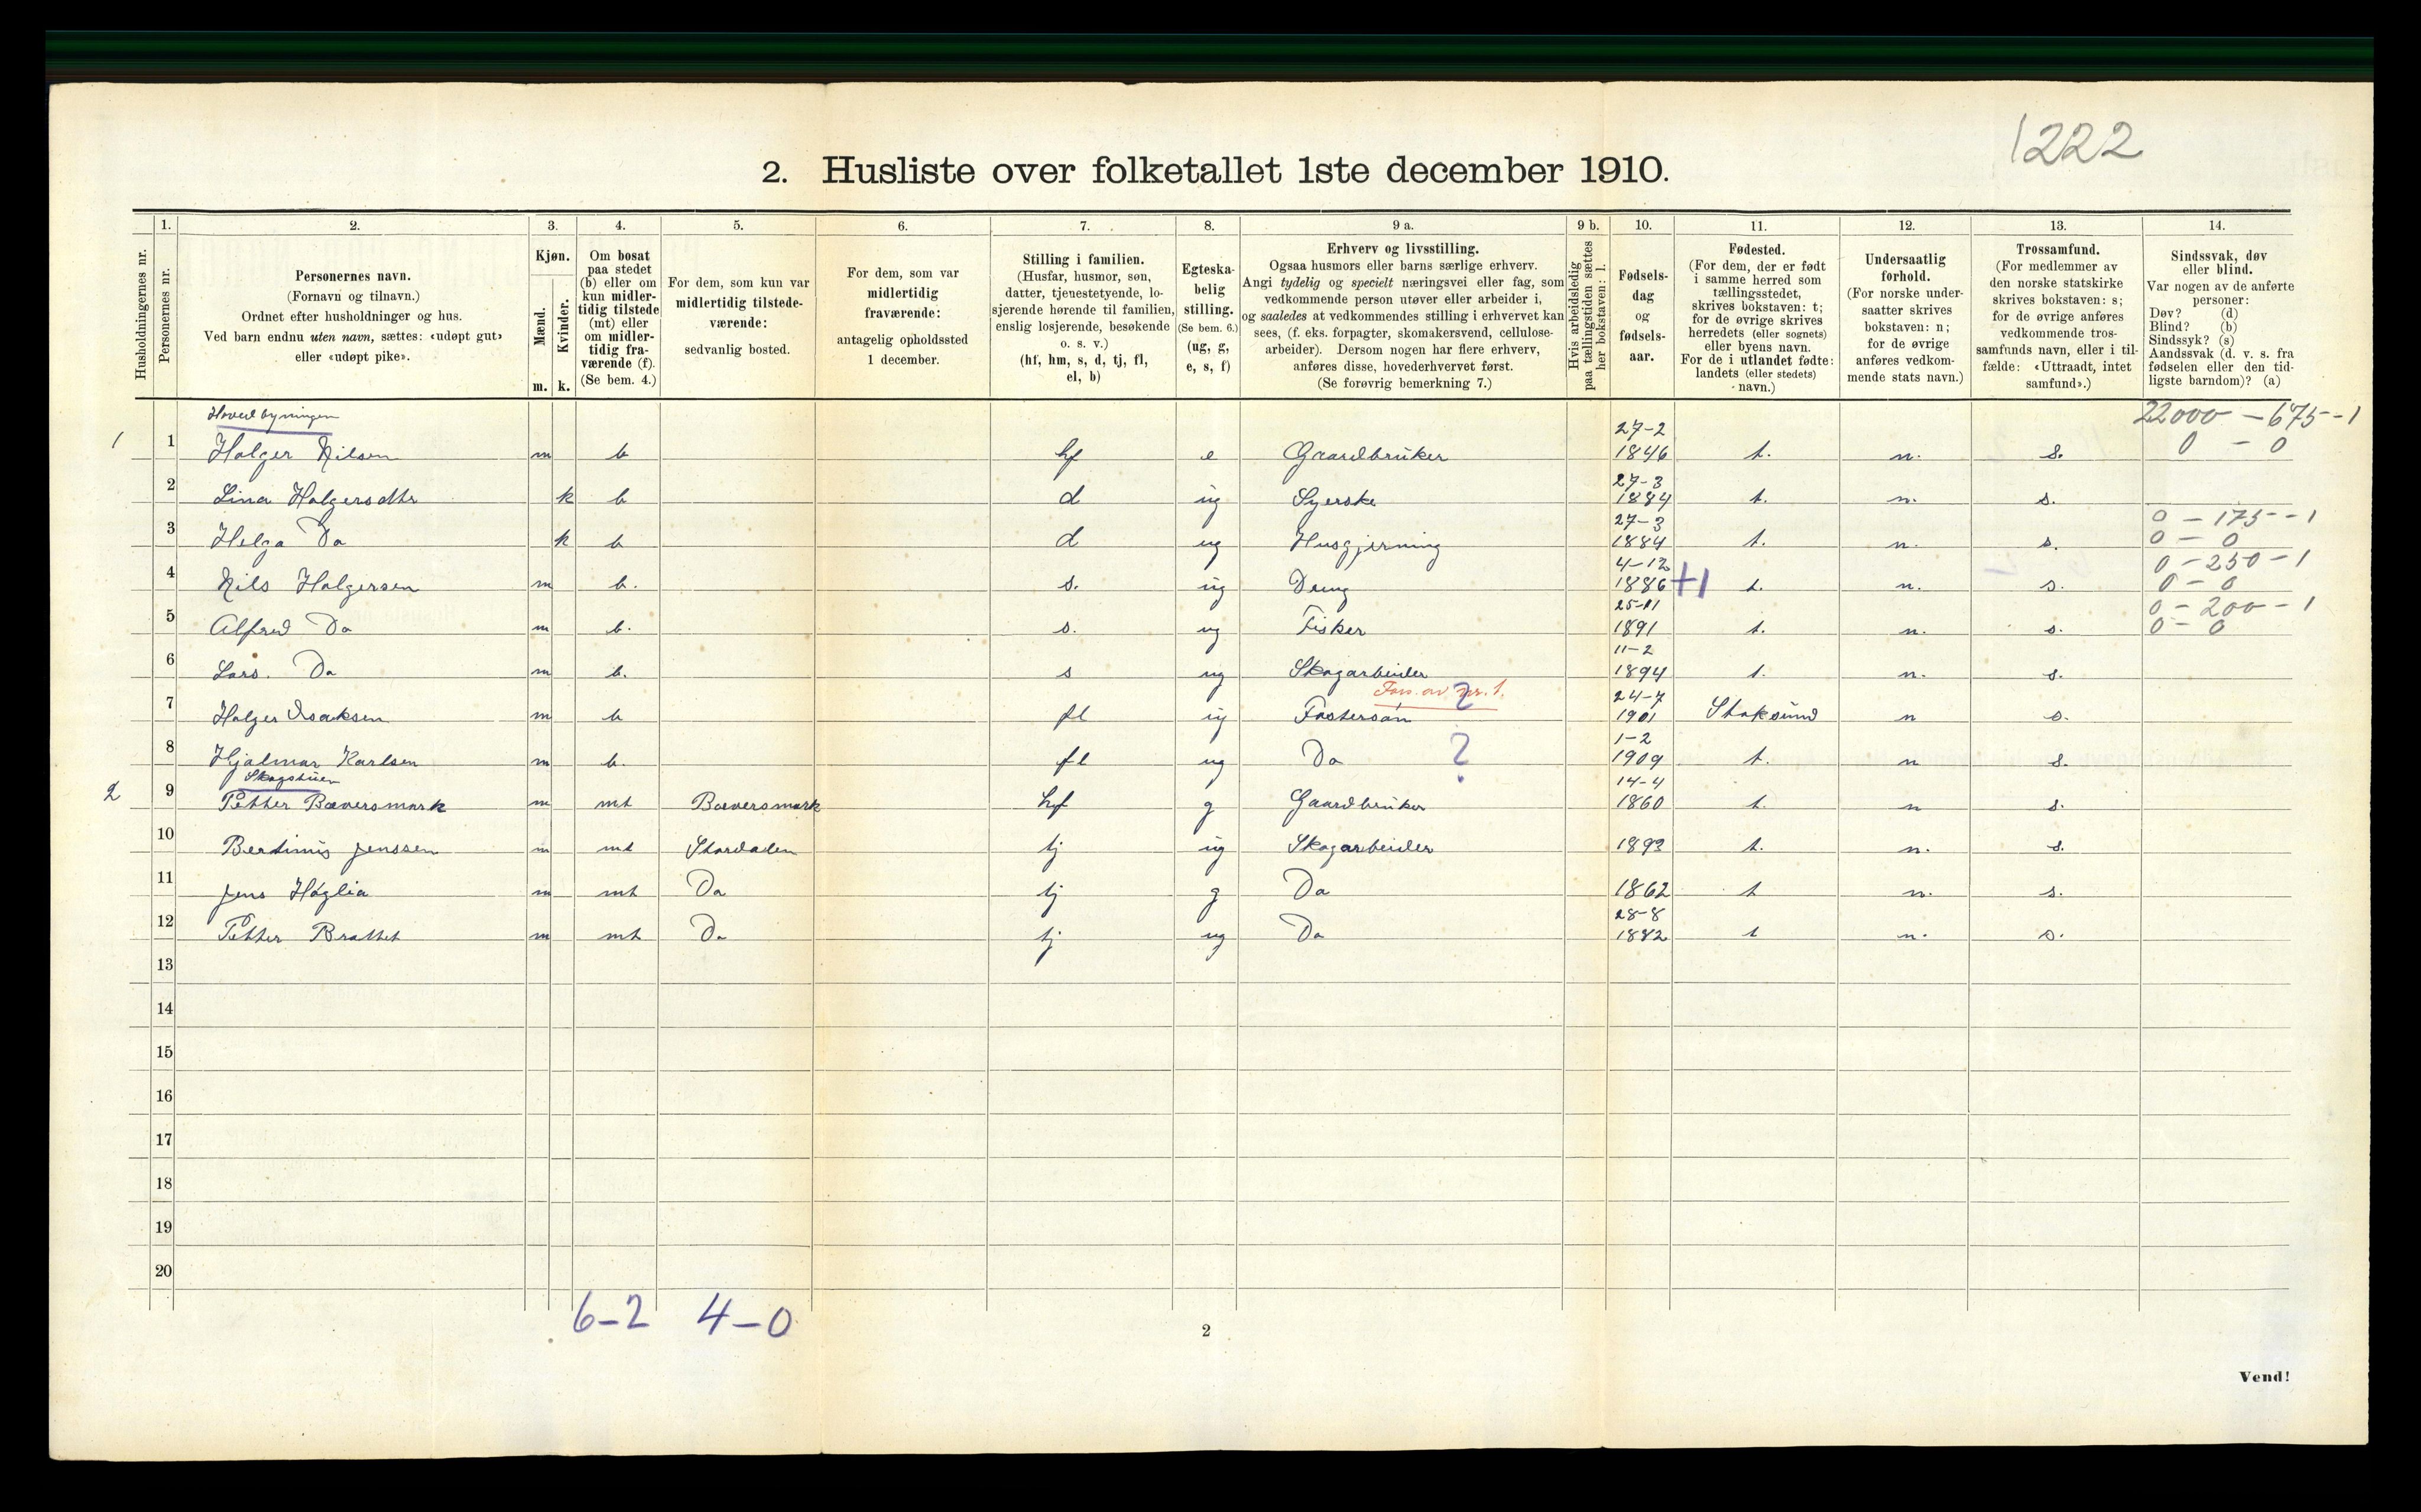 1222
2. Husliste over folketallet 1ste december 1910.
1. 2. 3. 4. 5. 6. 7. 8. 9 a. 9 b. 10. 11. 12. 13. 14.
Husholdningernes nr.
Personernes nr.
Personernes navn.
(Fornavn og tilnavn.)
Ordnet efter husholdninger og hus.
Ved barn endnu uten navn, sættes: «udøpt gut»
eller «udøpt pike».
Kjøn.
Mænd.
Kvinder.
m. k.
Om bosat
paa stedet
(b) eller om
kun midler-
tidig tilstede
(mt) eller
om midler-
tidig fra-
værende (f).
(Se bem. 4.)
For dem, som kun var
midlertidig tilstede-
værende:
sedvanlig bosted.
For dem, som var
midlertidig
fraværende:
antagelig opholdssted
1 december.
Stilling i familien.
(Husfar, husmor, søn,
datter, tjenestetyende, lo-
sjerende hørende til familien,
enslig losjerende, besøkende
o. s. v.)
(hf, hm, s, d, tj, fl,
el, b)
Egteska-
belig
stilling.
(Se bem. 6.)
(ug, g,
e, s, f)
Erhverv og livsstilling.
Ogsaa husmors eller barns særlige erhverv.
Angi tydelig og specielt næringsvei eller fag, som
vedkommende person utøver eller arbeider i,
og saaledes at vedkommendes stilling i erhvervet kan
sees, (f. eks. forpagter, skomakersvend, cellulose-
arbeider). Dersom nogen har flere erhverv,
anføres disse, hovederhvervet først.
(Se forøvrig bemerkning 7.)
Hvis arbeidsledig
paa tællingstiden sættes
her bokstaven: l.
Fødsels-
dag
og
fødsels-
aar.
Fødested.
(For dem, der er født
i samme herred som
tællingsstedet,
skrives bokstaven: t;
for de øvrige skrives
herredets (eller sognets)
eller byens navn.
For de i utlandet fødte:
landets (eller stedets)
navn.)
Undersaatlig
forhold.
(For norske under-
saatter skrives
bokstaven: n;
for de øvrige
anføres vedkom-
mende stats navn.)
Trossamfund.
(For medlemmer av
den norske statskirke
skrives bokstaven: s;
for de øvrige anføres
vedkommende tros-
samfunds navn, eller i til-
fælde: «Uttraadt, intet
samfund».)
Sindssvak, døv
eller blind.
Var nogen av de anførte
personer:
Døv? (d)
Blind? (b)
Sindssyk? (s)
Aandssvak (d. v. s. fra
fødselen eller den tid-
ligste barndom)? (a)
Hovedbyningen
22000 - 675 - 1
27-2
1 1 Holger Nilsen m b hf e Gaardbruker 1846 t. n. s. 0 - 0
27-3
2 Lina Holgersdtr k b d ug Syerske 1884 t. n. s.
27-3 0 - 175 - 1
3 Helga Do k b d ug Husgjerning 1884 t. n. s. 0 - 0
4-12 0 - 250 - 1
4 Nils Holgersen m b. s. ug Dreng 1886 +1 t. n. s. 0 - 0
25-11 0 - 200 - 1
5 Alfred Do m b. s. ug Fisker 1891 t. n. s. 0 - 0
11-2
6 Lars. Do m b. s ug Skogarbeider 1894 t. n. s.
av nr. 1. ?
24-7
7 Holger Isaksen m b fl ug Fostersøn 1901 Stoksund n s.
1-2
8 Hjalmar Karlsen m b. fl ug Do ? 1909 t. n s.
Skogstuen
14-4
2 9 Petter Bæversmark m mt Bæversmark hf g Gaardbruker 1860 t. n s.
10 Bertinus Jenssen m mt Stordalen tj ug Skogarbeider 1893 t. n. s.
11 Jens Høglia m mt Do tj g Do 1862 t n. s.
28-8
12 Petter Brattet m mt Do tj ug Do 1882 t n. s.
13
14
15
16
17
18
19
20
6-2 4-0
2
Vend!